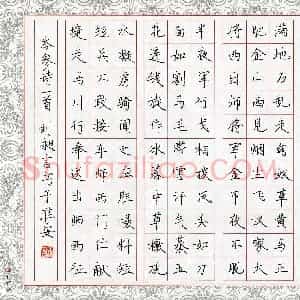 满地石乱走匈奴草黄马正
肥金山西见烟尘飞汉家大
将西出师将军金甲夜不脱
半夜军行戈相拨风头如刀
面如割马毛带雪汗气蒸五
花连钱旋作冰幕中草檄砚
水凝虏骑闻之应胆慑料知
短兵不敢接车师西门伫献
捷 走马川行奉送出师西征
岑参诗一首
Shufaziliao.com